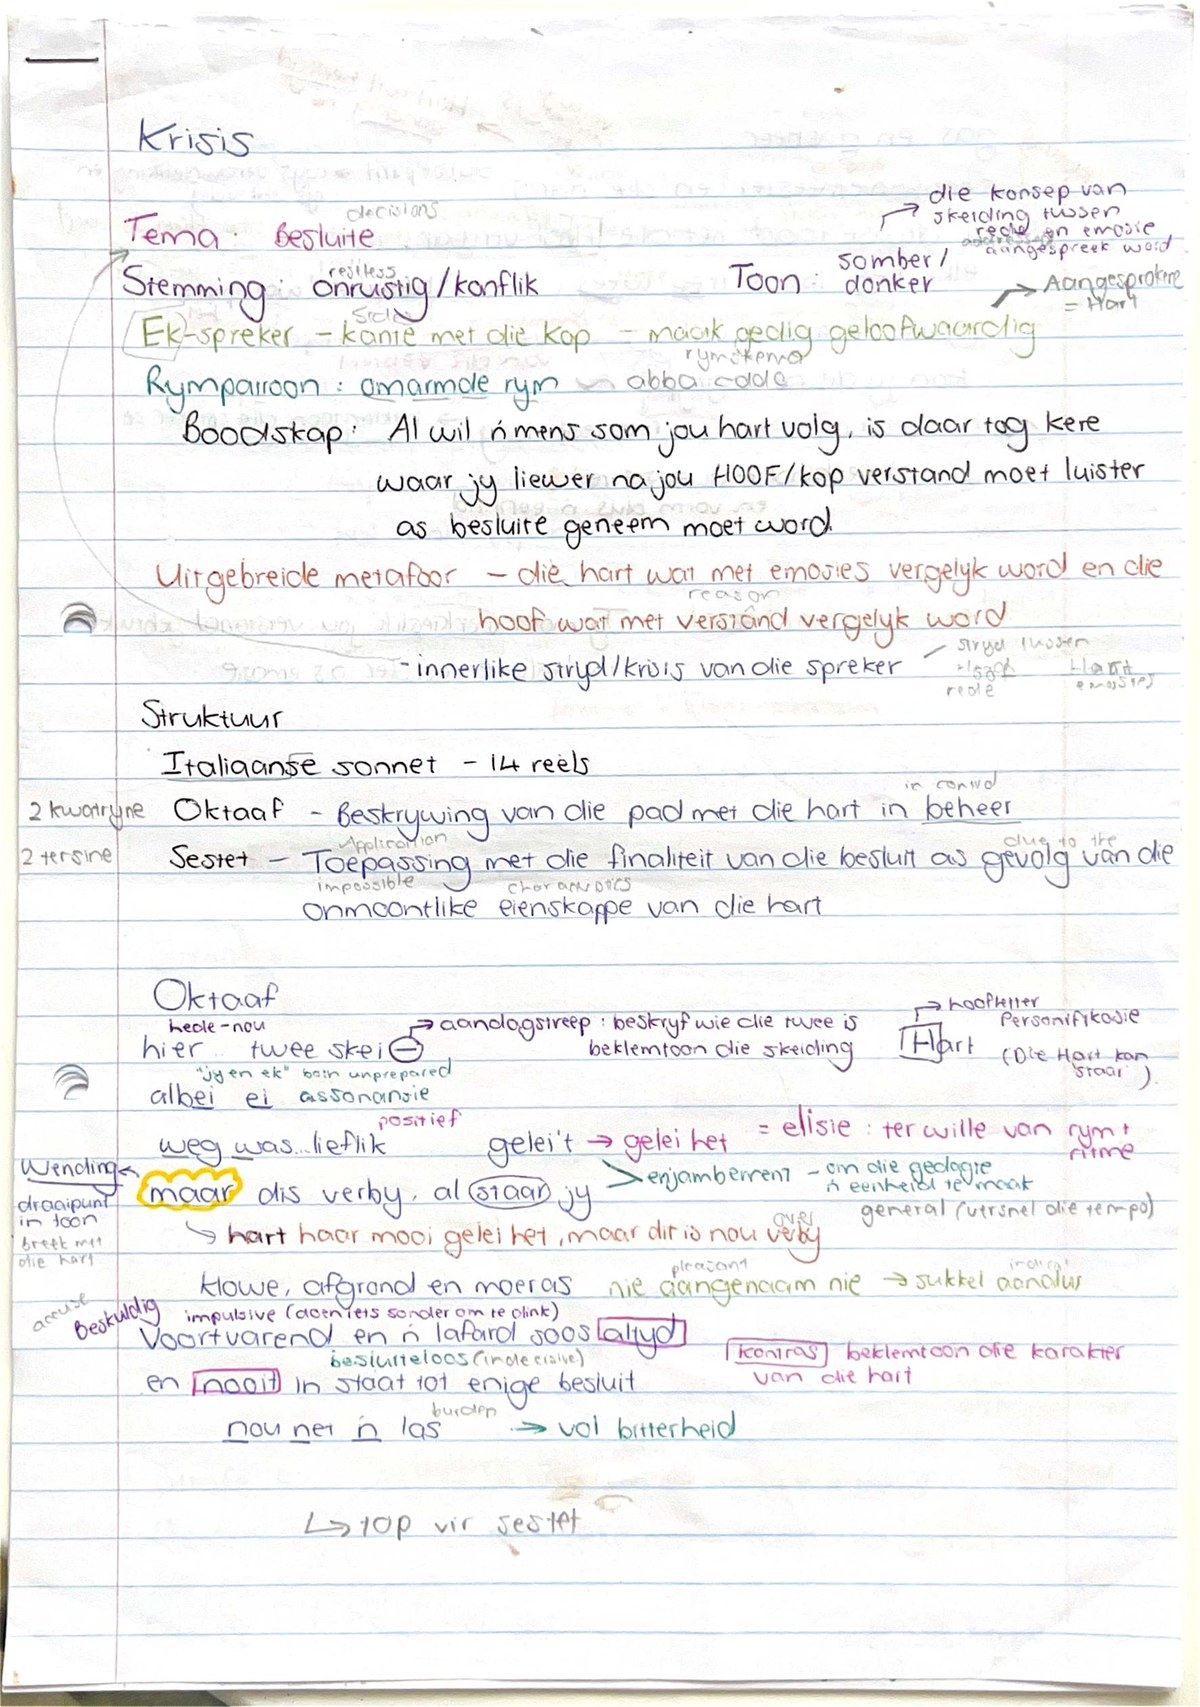 Krisis
die konsep van
skeiding tussen
rede en emosie
aangespreek word
decisions
Tema : Besluite
restless
Stemming : onrustig/konflik
Toon : somber/
donker
Aangesprokene
= Hart
Side
Ek-spreker – kante met die kop – maak gedig geloofwaardig
rymskema
Rympatroon : omarmde rym abba cddc
Boodskap: Al wil 'n mens som jou hart volg, is daar tog kere
waar jy liewer na jou HOOF/kop verstand moet luister
as besluite geneem moet word.
Uitgebreide metafoor – die hart wat met emosies vergelyk word en die
reason
hoof wat met verstand vergelyk word
- innerlike stryd/krisis van die spreker
stryd tussen
Hoof Hart
rede emosies
Struktuur
Italiaanse sonnet – 14 reëls
in control
2 kwatryne Oktaaf – Beskrywing van die pad met die hart in beheer
Application due to the
2 tersine Sestet – Toepassing met die finaliteit van die besluit as gevolg van die
impossible
onmoontlike eienskappe van die hart
Oktaaf
hede-nou
hier.. twee skei –
→ aandagstreep : beskryf wie die twee is
beklemtoon die skeiding
Hart
→ hoofletter
Personifikasie
(Die Hart kan
staar)
"jy en ek" both unprepared
albei ei assonansie
positief
weg was...lieflik gelei't → gelei het = elisie : ter wille van rym +
ritme
enjambement – om die gedagte
'n eenheid te maak
general (versnel die tempo)
Wending
draaipunt
in toon
breek met
die hart
maar dis verby, al staar jy
over
hart haar mooi gelei het, maar dit is nou verby
pleasant
klowe, afgrond en moeras nie aangenaam nie → sukkel aandui
accuse
Beskuldig
impulsive (doen iets sonder om te dink)
Voortvarend en 'n lafaard soos altyd
besluiteloos (indecisive)
en nooit in staat tot enige besluit
kontras beklemtoon die karakter
van die hart
burden
nou net 'n las → vol bitterheid
↳ top vir sestet